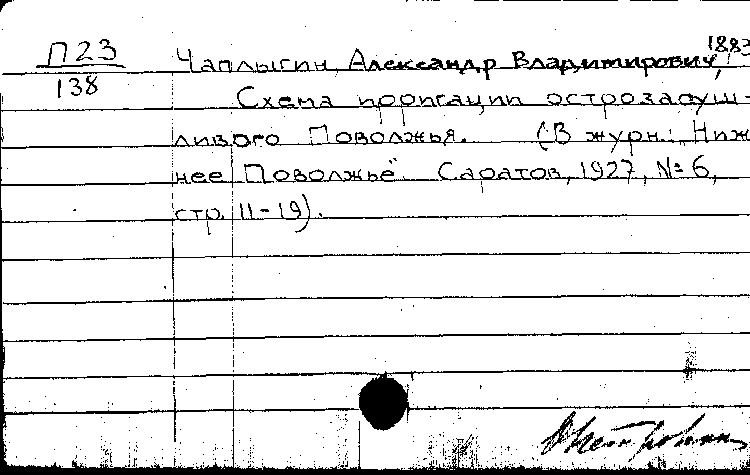 П23
138
Чаплыгин, Александр Владимирович, 1883
Схема ирригации острозасуш-
ливого Поволжья. (В журн.: „Ниж
нее Поволжье". Саратов, 1927, № 6,
стр. 11-19).